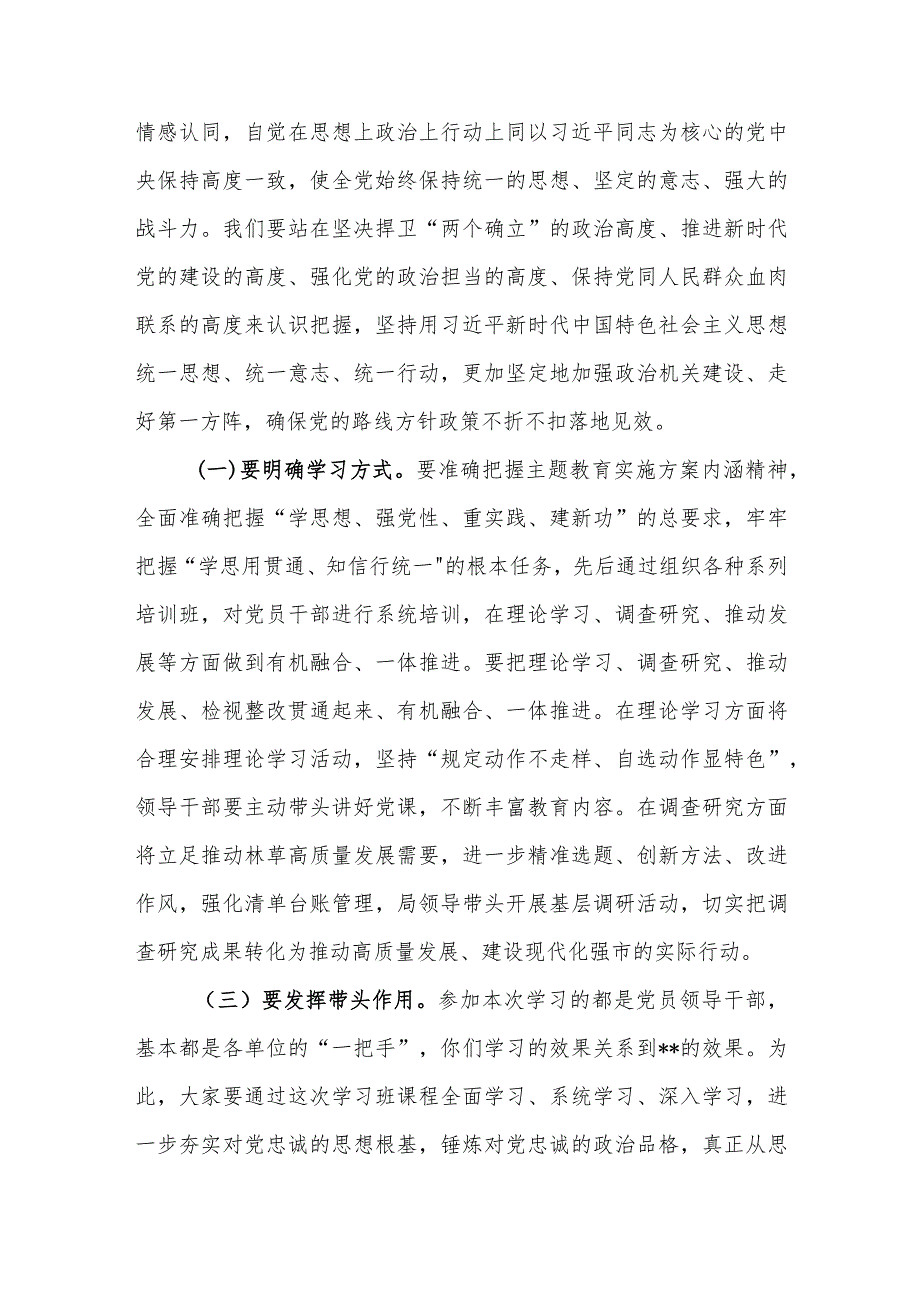 情感认同，自觉在思想上政治上行动上同以习近平同志为核心的党中
央保持高度一致，使全党始终保持统一的思想、坚定的意志、强大的
战斗力。我们要站在坚决捍卫“两个确立”的政治高度、推进新时代
党的建设的高度、强化党的政治担当的高度、保持党同人民群众血肉
联系的高度来认识把握，坚持用习近平新时代中国特色社会主义思想
统一思想、统一意志、统一行动，更加坚定地加强政治机关建设、走
好第一方阵，确保党的路线方针政策不折不扣落地见效。
(一)要明确学习方式。要准确把握主题教育实施方案内涵精神，
全面准确把握“学思想、强党性、重实践、建新功”的总要求，牢牢
把握“学思用贯通、知信行统一"的根本任务，先后通过组织各种系列
培训班，对党员干部进行系统培训，在理论学习、调查研究、推动发
展等方面做到有机融合、一体推进。要把理论学习、调查研究、推动
发展、检视整改贯通起来、有机融合、一体推进。在理论学习方面将
合理安排理论学习活动，坚持“规定动作不走样、自选动作显特色”，
领导干部要主动带头讲好党课，不断丰富教育内容。在调查研究方面
将立足推动林草高质量发展需要，进一步精准选题、创新方法、改进
作风，强化清单台账管理，局领导带头开展基层调研活动，切实把调
查研究成果转化为推动高质量发展、建设现代化强市的实际行动。
（三）要发挥带头作用。参加本次学习的都是党员领导干部，
基本都是各单位的“一把手”，你们学习的效果关系到**的效果。为
此，大家要通过这次学习班课程全面学习、系统学习、深入学习，进
一步夯实对党忠诚的思想根基，锤炼对党忠诚的政治品格，真正从思